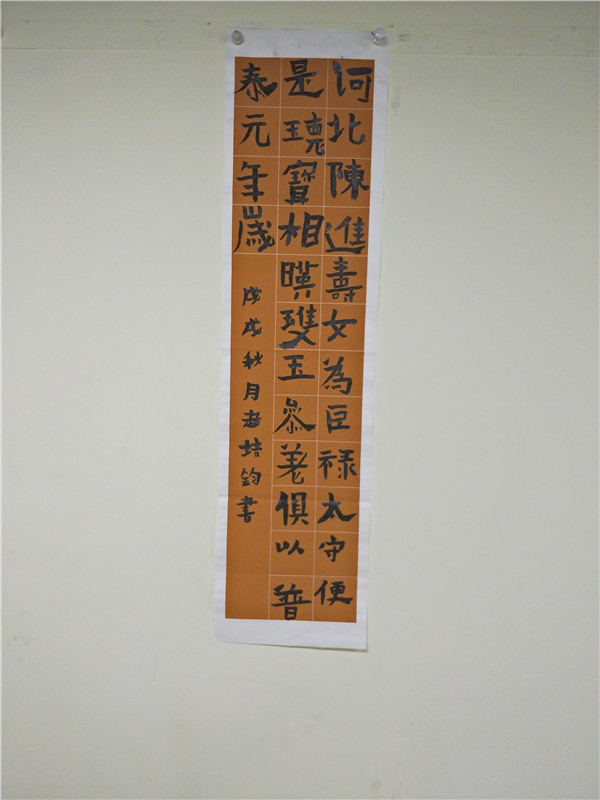 河北陳進壽女為巨祿太守便
是寶相暎雙玉參差俱以普
泰元年歲
戊戌秋月培鈞書